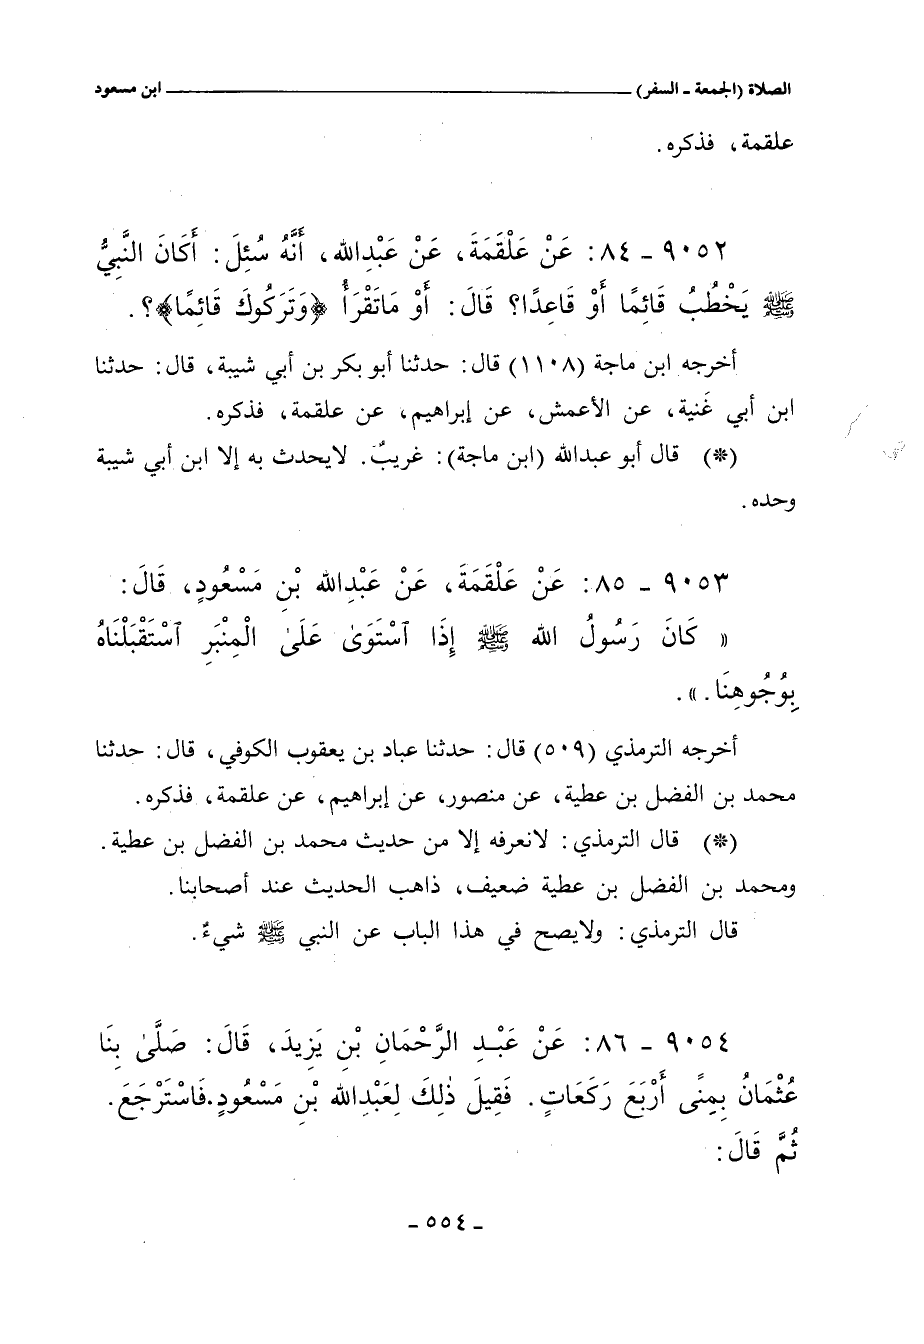 الصلاة (الجمعة - السفر) ــــــــــــــــ ابن مسعود
علقمة، فذكره.
٩٠٥٢ - ٨٤: عَنْ عَلْقَمَةَ، عَنْ عَبْدِالله، أَنَّهُ سُئِلَ: أَكَانَ النَّبِيُّ
ﷺ يَخْطُبُ قَائِمًا أَوْ قَاعِدًا؟ قَالَ: أَوْ مَاتَقْرَأُ ﴿وَتَرَكُوكَ قَائِمًا﴾؟.
أخرجه ابن ماجة (١١٠٨) قال: حدثنا أبو بكر بن أبي شيبة، قال: حدثنا
ابن أبي غَنية، عن الأعمش، عن إبراهيم، عن علقمة، فذكره.
(*) قال أبو عبدالله (ابن ماجة): غريبٌ. لايحدث به إلا ابن أبي شيبة
وحده.
٩٠٥٣ - ٨٥: عَنْ عَلْقَمَةَ، عَنْ عَبْدِالله بْنِ مَسْعُودٍ، قَالَ:
« كَانَ رَسُولُ الله ﷺ إِذَا ٱسْتَوَىٰ عَلَىٰ الْمِنْبَرِ ٱسْتَقْبَلْنَاهُ
بِوُجُوهِنَا.».
أخرجه الترمذي (٥٠٩) قال: حدثنا عباد بن يعقوب الكوفي، قال: حدثنا
محمد بن الفضل بن عطية، عن منصور، عن إبراهيم، عن علقمة، فذكره.
(*) قال الترمذي: لانعرفه إلا من حديث محمد بن الفضل بن عطية.
ومحمد بن الفضل بن عطية ضعيف، ذاهب الحديث عند أصحابنا.
قال الترمذي: ولايصح في هذا الباب عن النبي ﷺ شيءٌ.
٩٠٥٤ - ٨٦: عَنْ عَبْدِ الرَّحْمَانِ بْنِ يَزِيدَ، قَالَ: صَلَّىٰ بِنَا
عُثْمَانُ بِمِنًى أَرْبَعَ رَكَعَاتٍ. فَقِيلَ ذٰلِكَ لِعَبْدِالله بْنِ مَسْعُودٍ.فَاسْتَرْجَعَ.
ثُمَّ قَالَ:
- ٥٥٤ -